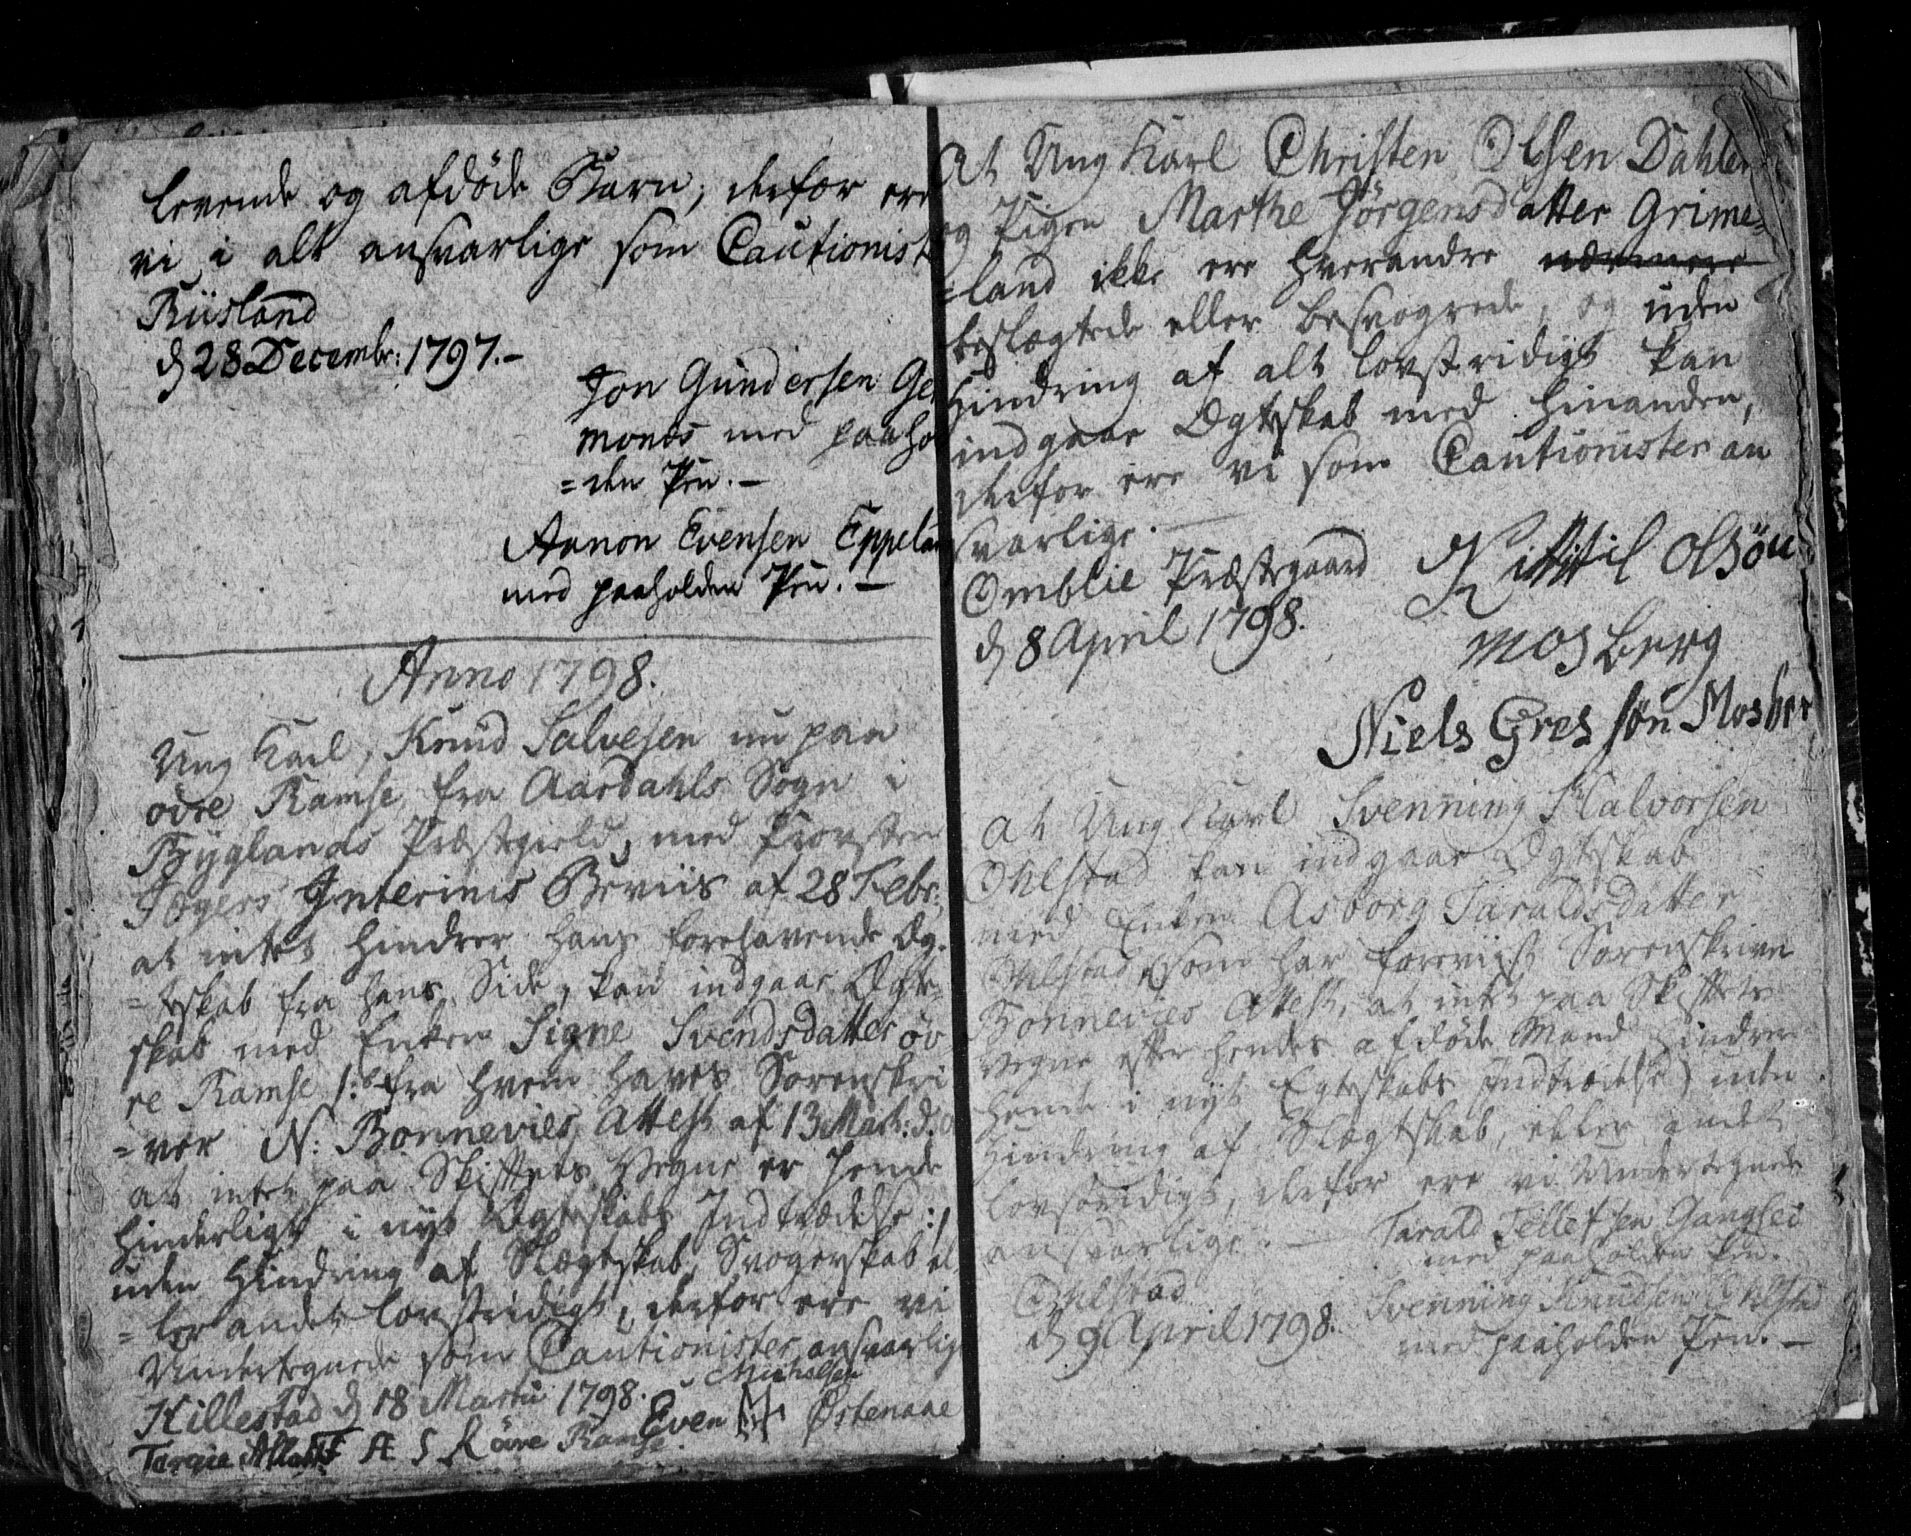 levende og afdöde Barn, derfor ere
vi i alt ansvarlige som Cautionist
Riisland
d 28 Decembr: 1797.-
Jon Gundersen Ge
monæs med paahol
=den Pen.-
Aanon Evensen Eppelan
med paaholden Pen.-
Anno 1798.
Ung Karl, Knud Salvesen nu paa
övre Ramse, fra Aardahls Sogn i
Byglands Præstegield, med Provsten
Jægers Interims Beviis af 28 Febr:,
at intet hindrer hans forehavende Æg-
=teskab fra hans Side, kan indgaae Ægte-
skab med Enken Signe Svendsdatter öv
re Ramse /: fra hvem haves Sorenskri
=ver N: Bonnevies Attest af 13 Mart: d.
at intet paa Skiftets Vegne er hende
hinderligt i nyt Ægteskabs Indtrædelse :/
uden Hindring af Slægtskab, Svogerskab el
=ler andet lovstridigt, derfor ere vi
Undertegnede som Cautionister ansvarlig
Hillestad d 18 Martii 1798.
Michelsen
Even Østenaae
Tærgie övre Ramse.
At Ung Karl Christen Olsen Dahlen
og Pigen Marthe Jörgensdatter Grime=
=land ikke ere hverandre nærmere
beslægtede eller besvogrede, og uden
Hindring af alt lovstridigt kan
indgaae Ægteskab med hinanden,
derfor ere vi som Cautionister an
svarlige.
Omblie Præstegaard
d 8 April 1798.
Kittil Olsön
Mosberg
Niels Gres sön Mosber
At Ung Karl Svenning Halvorsen
Ohlstad kan indgaae Ægteskab
med Enken Asborg Taraldsdatter
Ohlstad (som har foreviist Sorenskriver
Bonnevies Attest, at intet paa Skiftets
Vegne efter hendes afdöde Mand hindrer
hende i nyt Egteskabs Indtrædelse) uden
Hindring af Slægtskab, eller andet
lovstridigt, derfor ere vi Undertegnede
ansvarlige.-
Tarald Tellefsen Gangsei
med paaholden Pen.
Ohlstad
d 9 April 1798.
Svenning Knudsen Ohlstad
med paaholden Pen.-